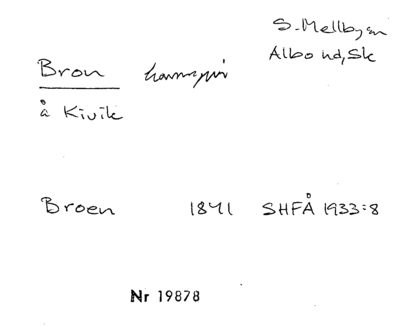 S. Mellby sn
Albo hd, Sk
Bron hamnpir
å Kivik
Broen 1841 SHFÅ 1933:8
Nr 19878